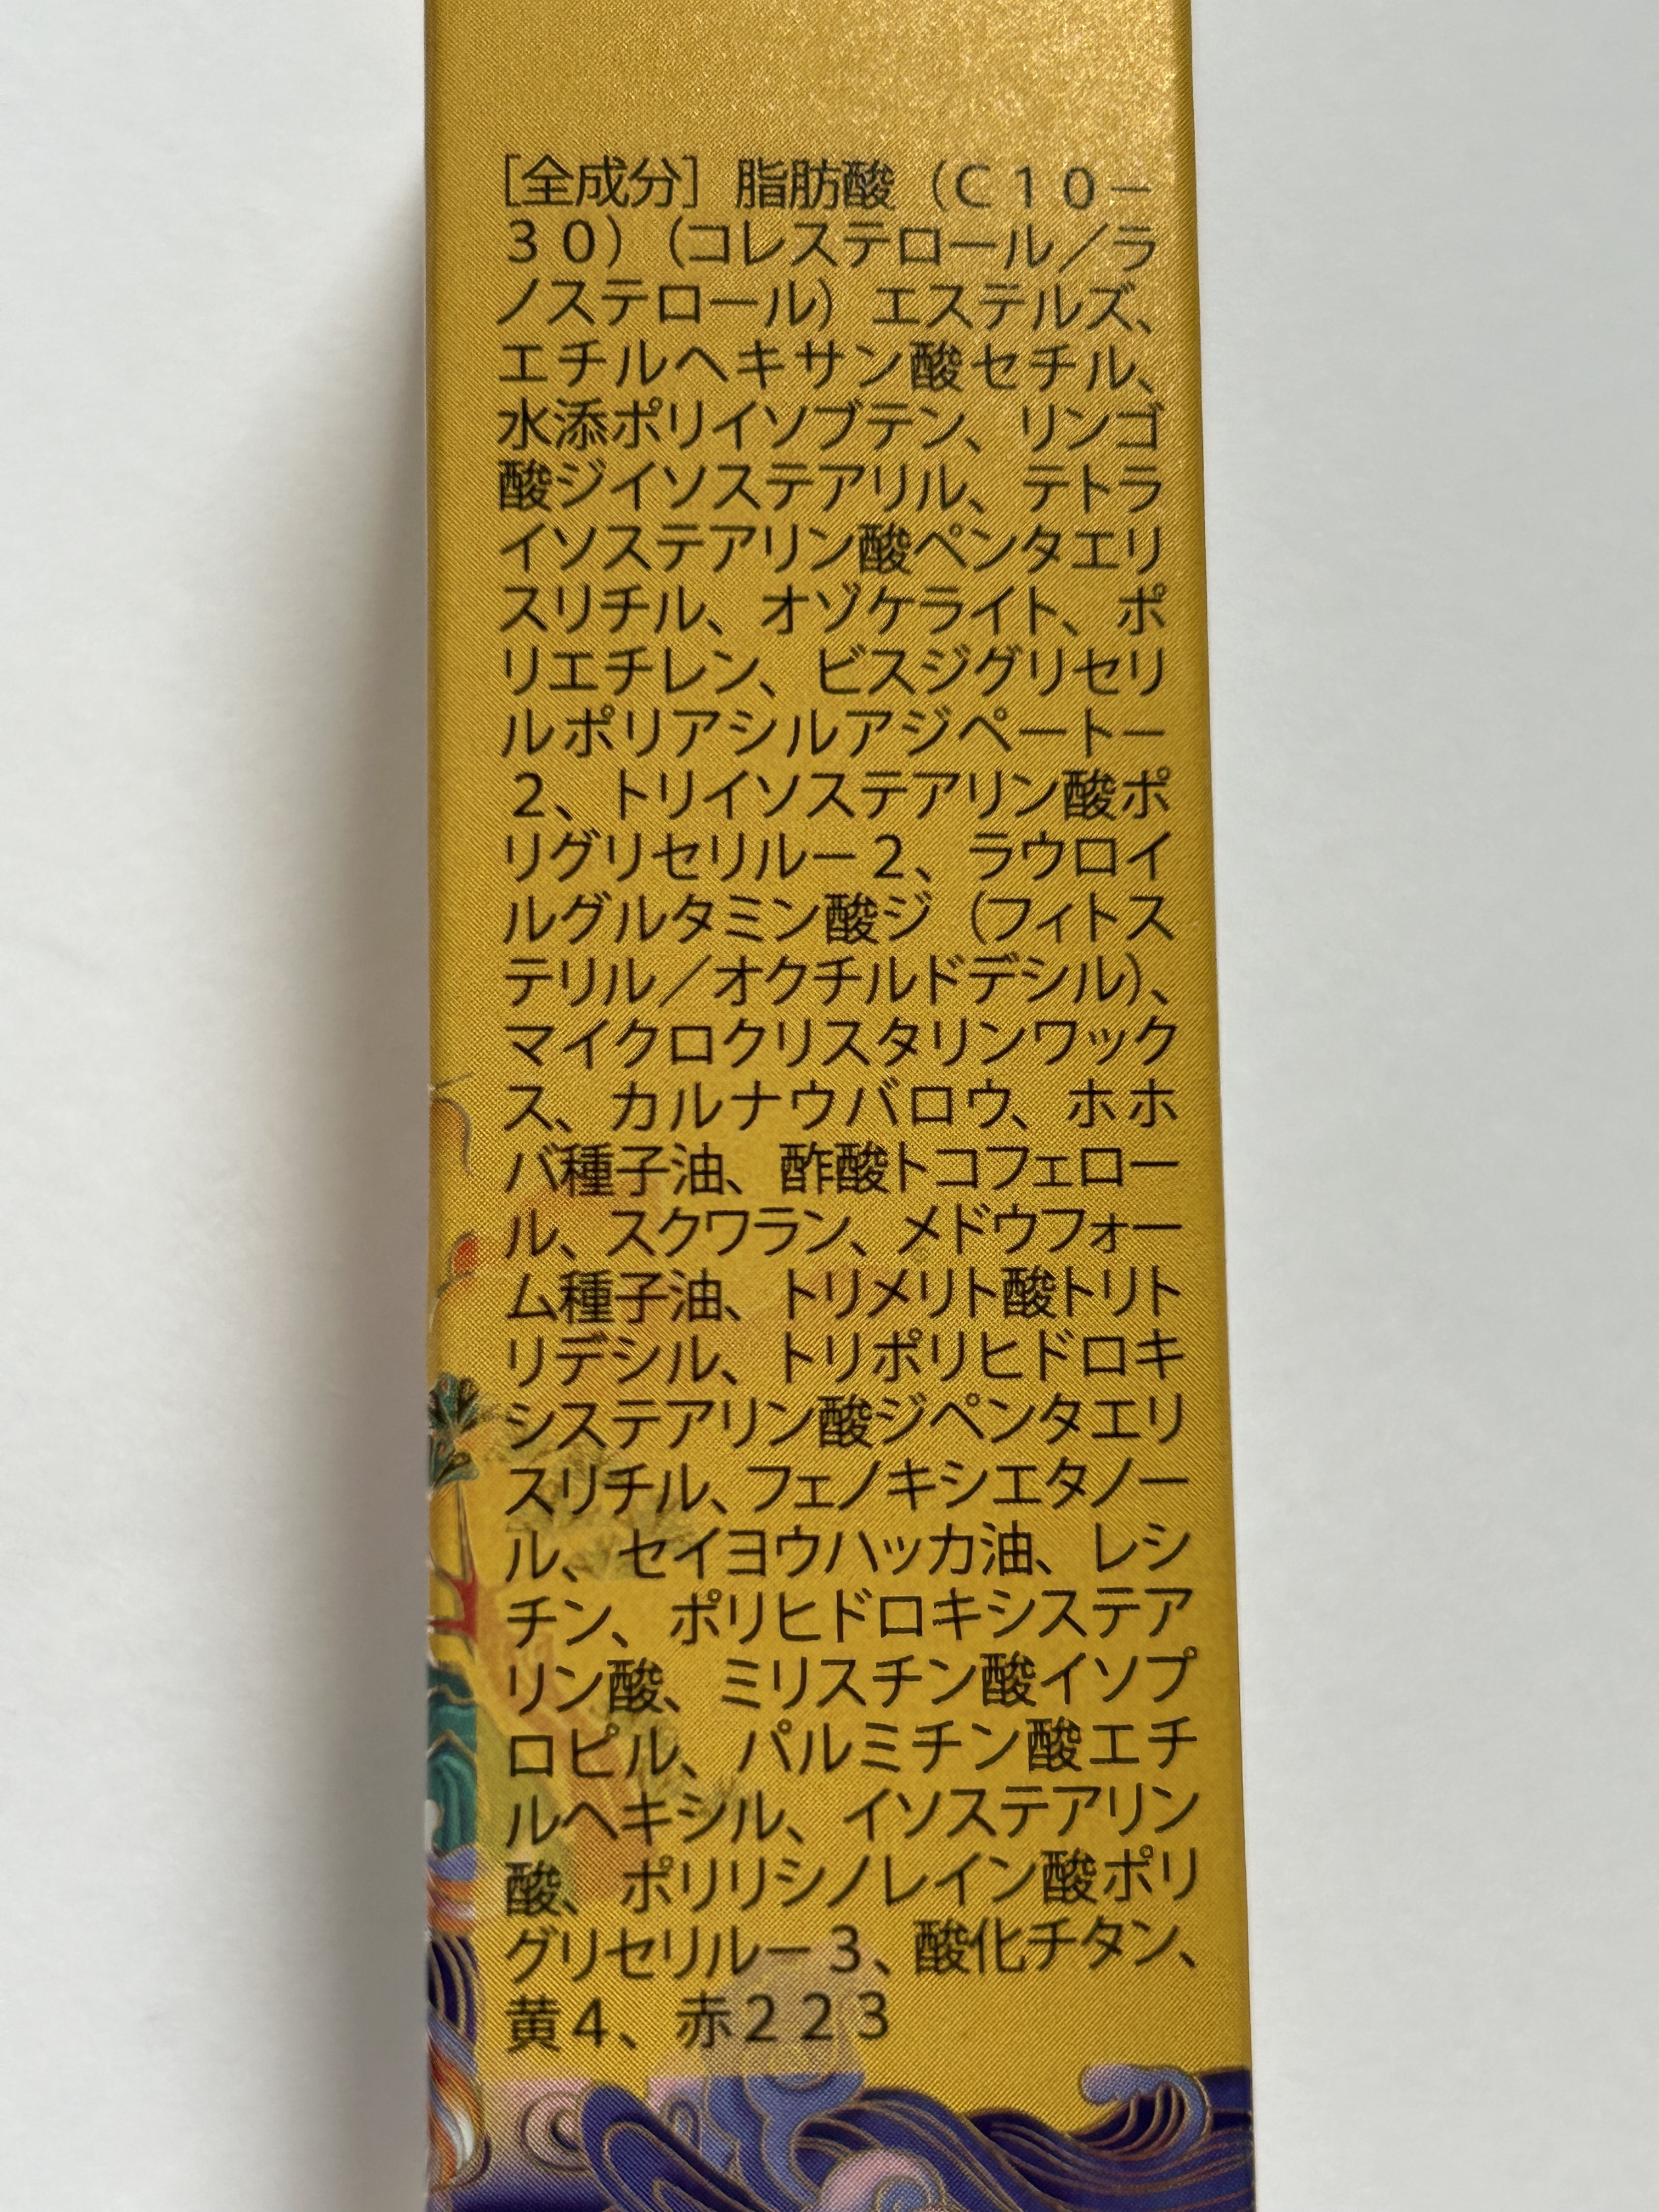 ［全成分］ 脂肪酸（Ｃ１０－
３０）（コレステロール／ラ
ノステロール）エステルズ、
エチルヘキサン酸セチル、
水添ポリイソブテン、リンゴ
酸ジイソステアリル、テトラ
イソステアリン酸ペンタエリ
スリチル、オゾケライト、ポ
リエチレン、ビスジグリセリ
ルポリアシルアジペート－
２、トリイソステアリン酸ポ
リグリセリル－２、ラウロイ
ルグルタミン酸ジ（フィトス
テリル／オクチルドデシル）、
マイクロクリスタリンワック
ス、カルナウバロウ、ホホ
バ種子油、酢酸トコフェロー
ル、スクワラン、メドウフォー
ム種子油、トリメリト酸トリト
リデシル、トリポリヒドロキ
システアリン酸ジペンタエリ
スリチル、フェノキシエタノー
ル、セイヨウハッカ油、レシ
チン、ポリヒドロキシステア
リン酸、ミリスチン酸イソプ
ロピル、パルミチン酸エチ
ルヘキシル、イソステアリン
酸、ポリリシノレイン酸ポリ
グリセリル－３、酸化チタン、
黄４、赤２２３